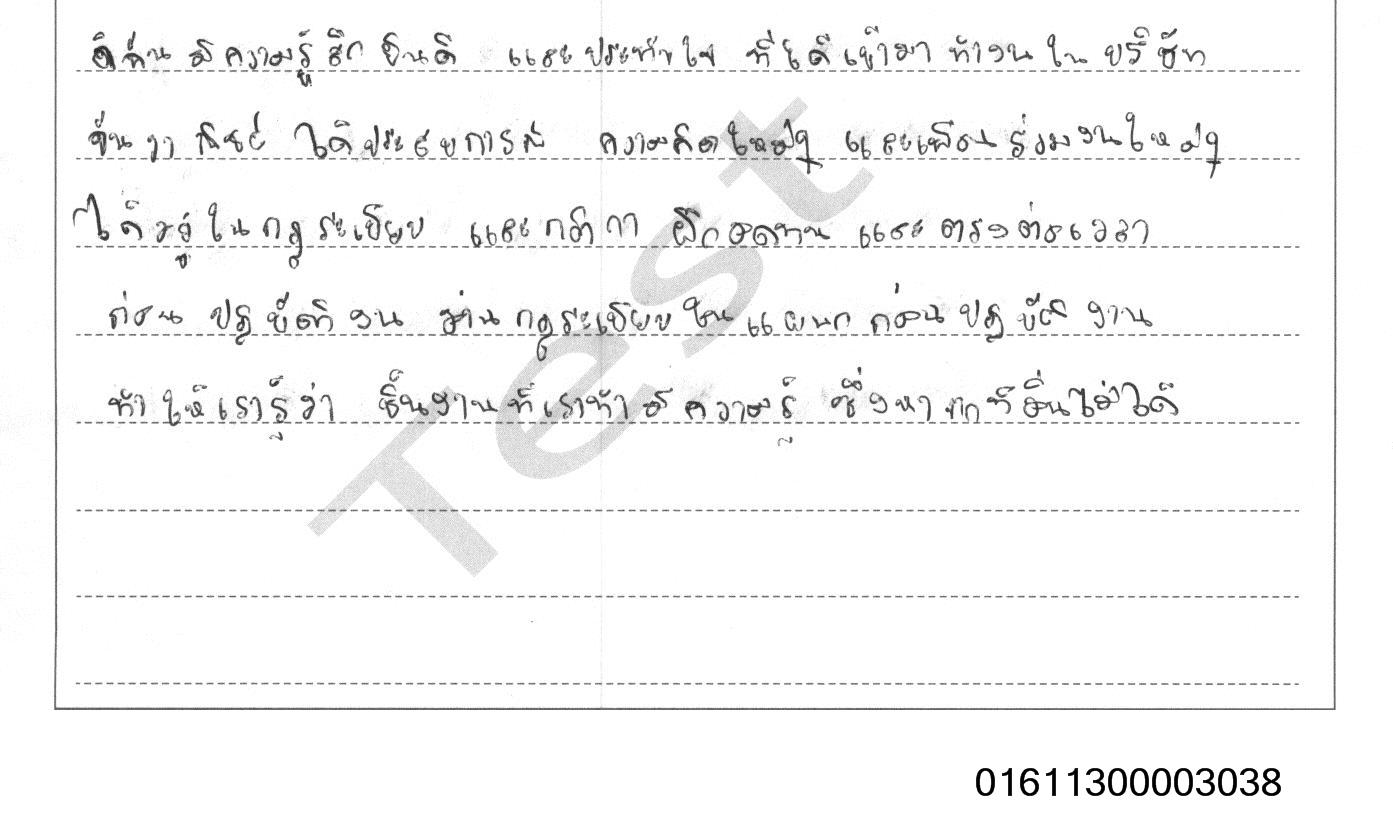 ดิฉันมีความรู้สึกยินดี และประทับใจ ที่ได้เข้ามาทำงานในบริษัท
ได้ประสบการณ์ ความคิดใหม่ๆ และเพื่อนร่วมงานใหม่ๆ
ได้อยู่ในกฎระเบียบ และกติกา ฝึกอดทน และตรงต่อเวลา
ก่อนปฏิบัติงาน อ่านกฎระเบียบในแผนกก่อนปฏิบัติงาน
ทำให้เรารู้ว่า ชิ้นงานที่เราทำมีความรู้ ซึ่งหาจากที่อื่นไม่ได้
Test
01611300003038